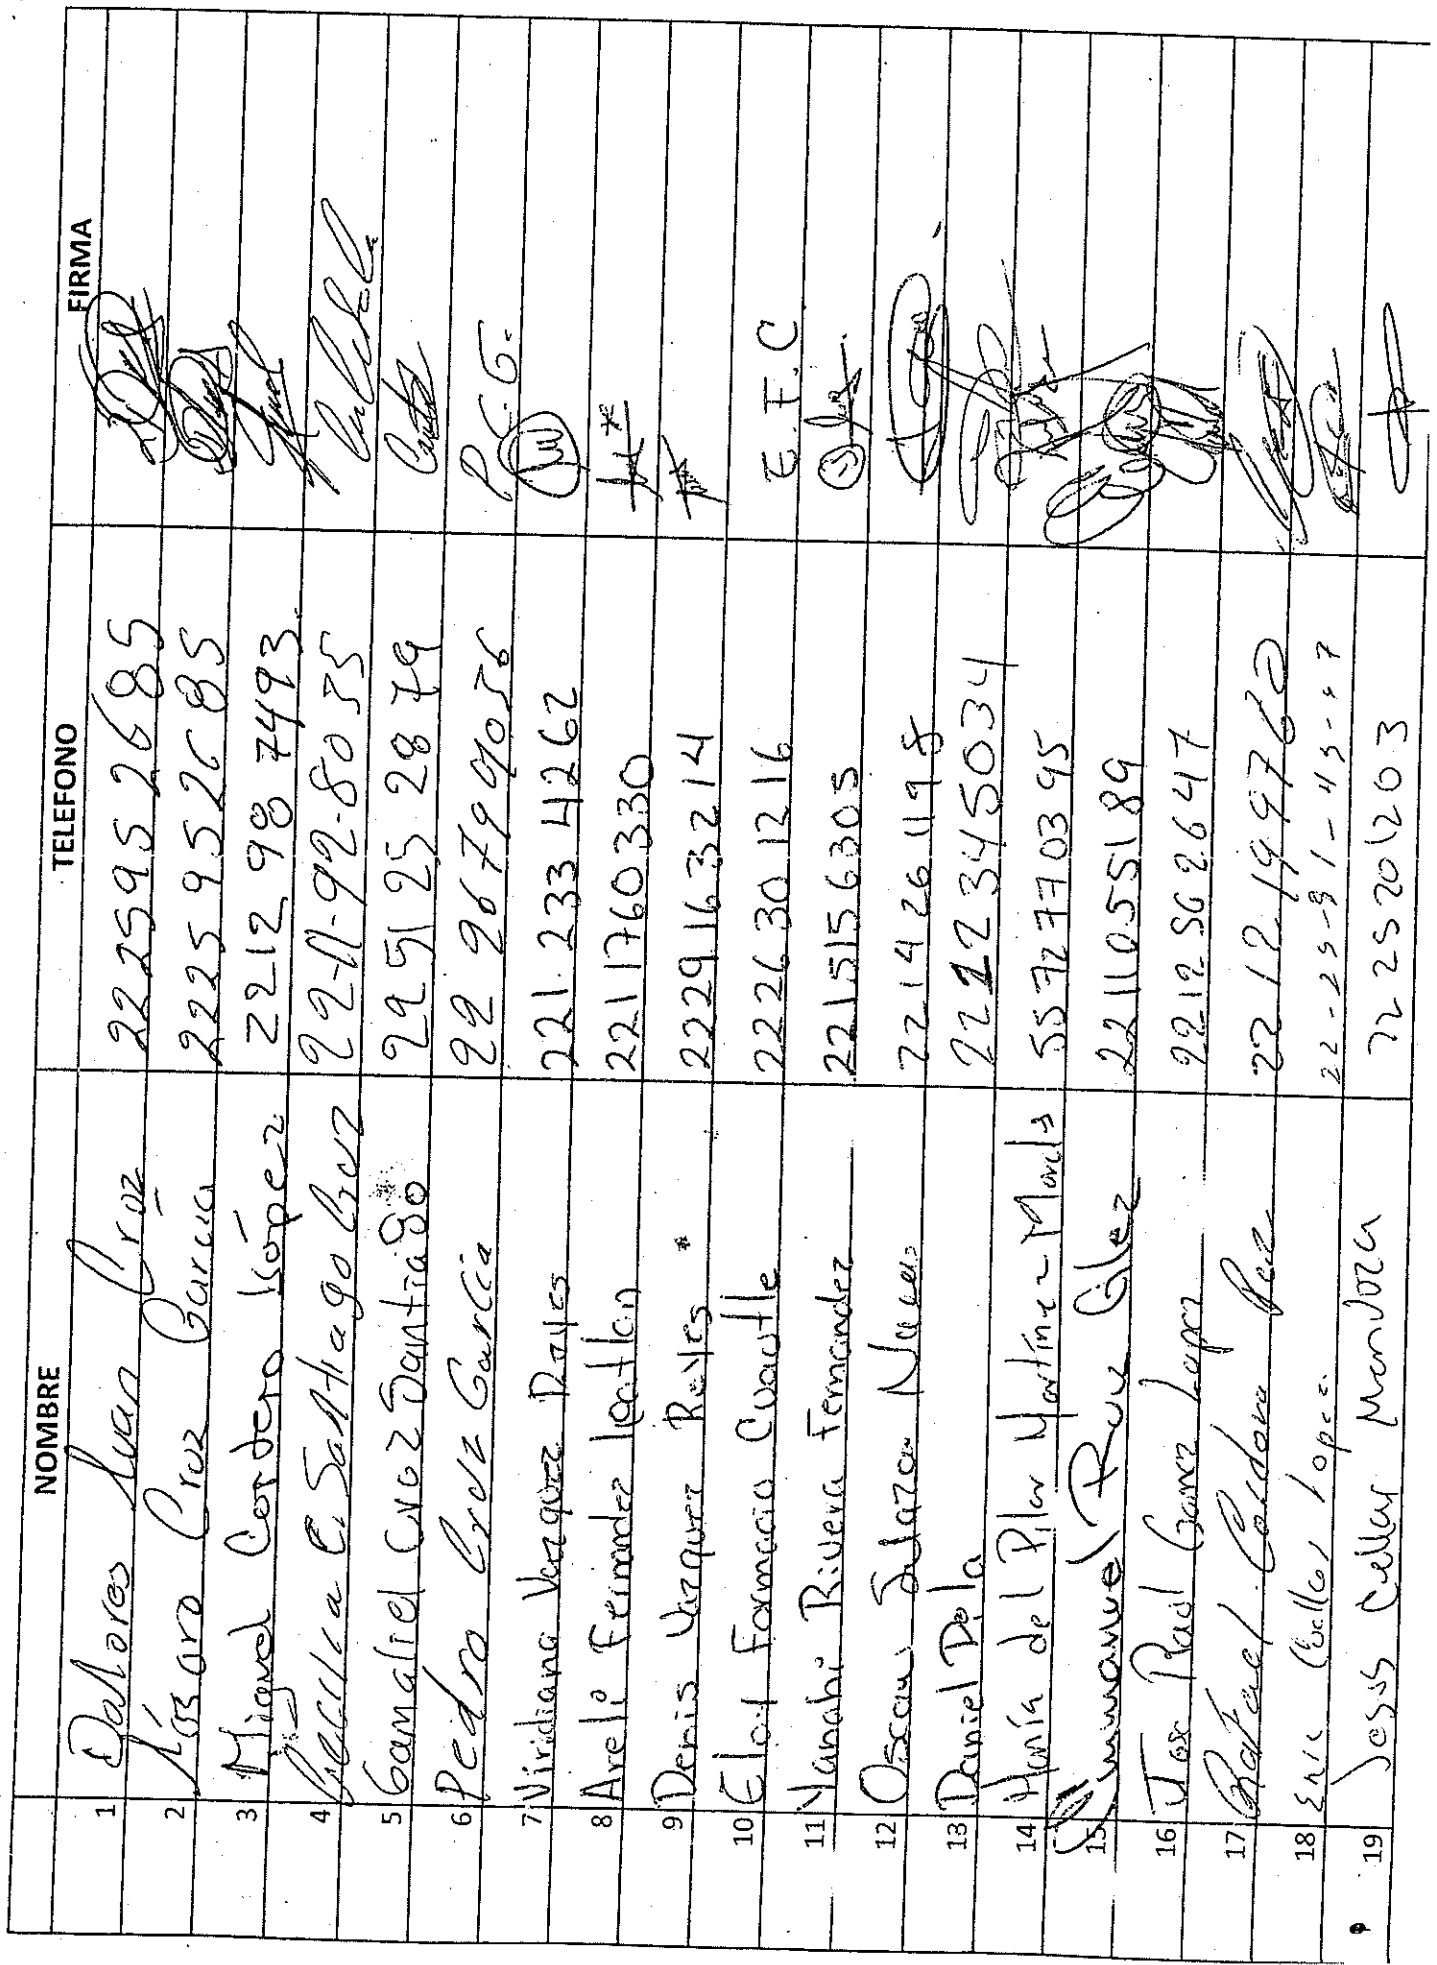 NOMBRE TELEFONO FIRMA
1 Dolores Juan Cruz 2225952685
2 Cruz García 2225952685
3 Miguel Cordero López 2212987493
4 Santiago Cruz 22-11-92-80 35
5 Gamaliel Cruz Santiago 2951252879
6 Pedro Cruz García 22 26799036 P.C.G.
7 Viridiana Vazquez Reyes 221 233 4262
8 Areli Fernandez 2211760330
9 Denis Vazquez Reyes 2229163214
10 Eloy Formacio Cuautle 2226301216 E.F.C
11 Yanahi Rivera Fernandez 2215156305
12 Oscar Salazar 2214261198
13 Daniel 2212345034
14 María del Pilar Martínez 5572770395
15 2211055189
16 Jose Raul Gomez Lopez 2212562647
17 Rafael Cordova 2212199760
18 Eric Lopez
19 Jesus Cuellar Mendoza 2225201203